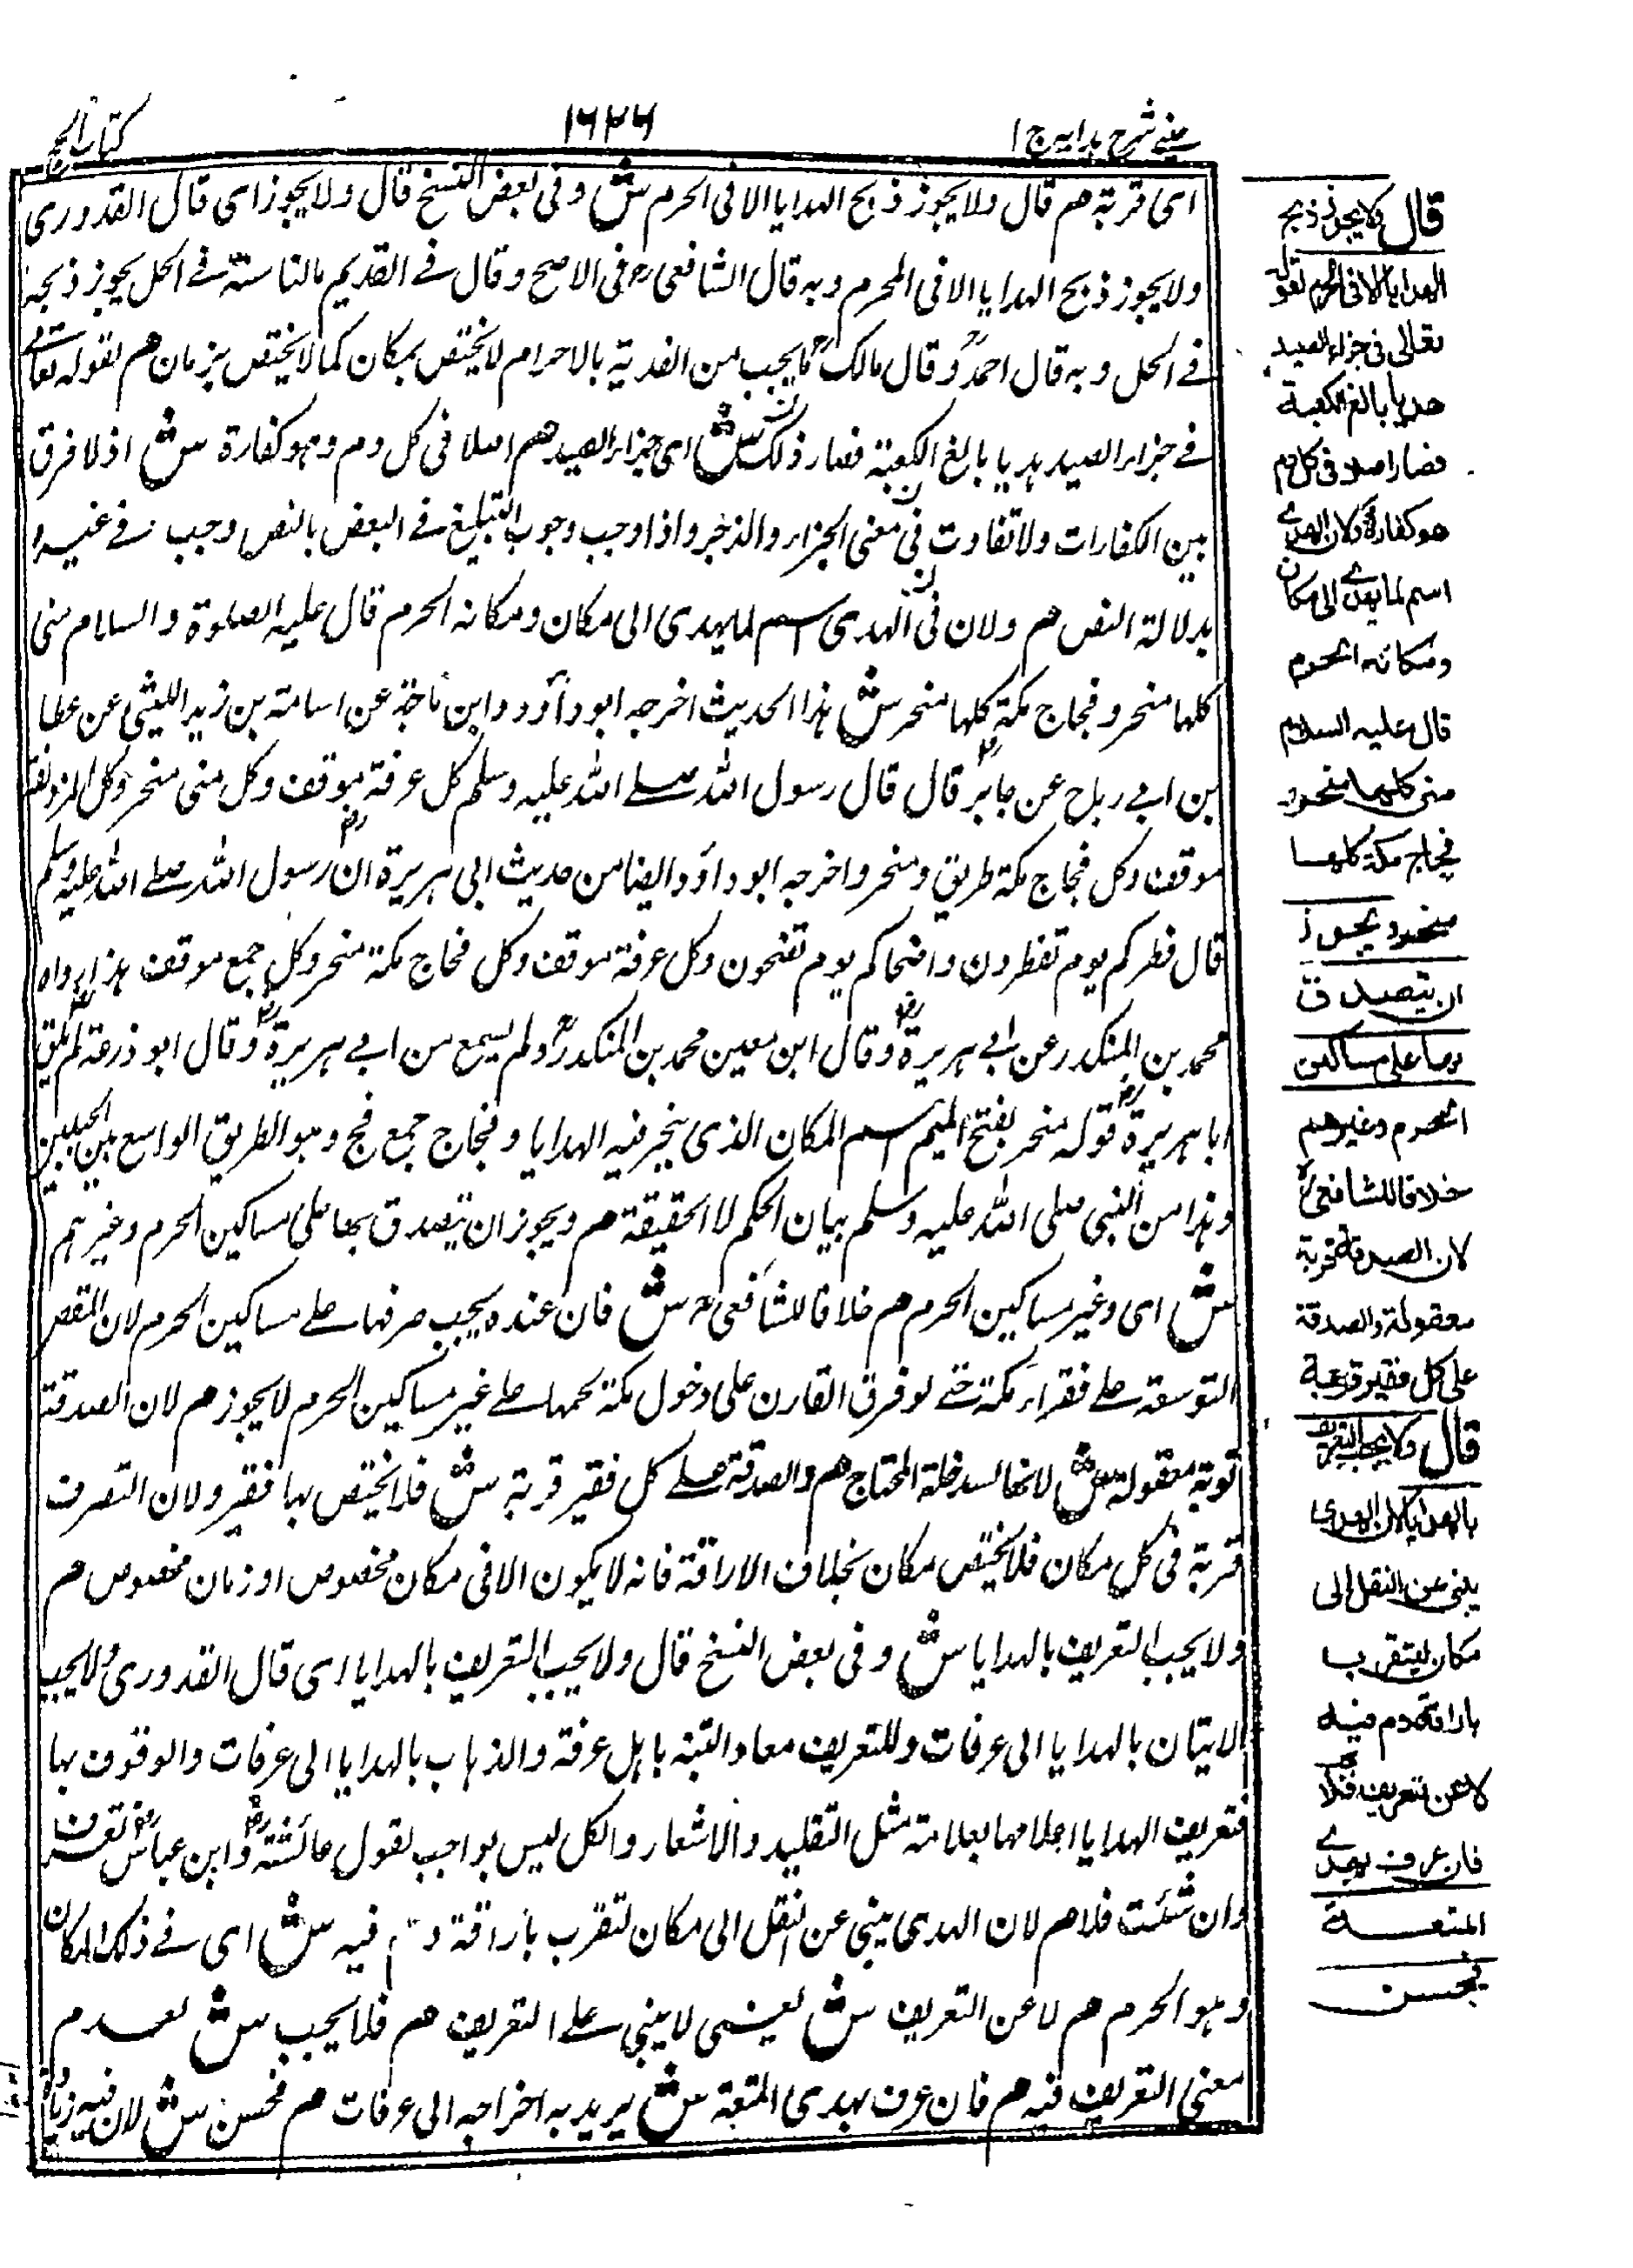 عینے شرح ہدایہ ج ۱
۱۶۲۶
کتاب الحج
ای قربة هم قال ولا یجوز ذبح الهدایا الا فی الحرم ش وفی بعض النسخ قال ولا یجوز ای قال القدوری
ولا یجوز ذبح الهدایا الا فی الحرم وبه قال الشافعی رح فی الاصح وقال فے القدیم فے الحل یجوز ذبحہ
فے الحل وبه قال احمد رح وقال مالک رح ما یجب من الفدیة بالاحرام لا یختص بمکان کما لا یختص بزمان هم لقوله تعالے
فے جزاء الصید ہدیا بالغ الکعبة فصار ذلک ش ای جزاء الصید هم اصلا فی کل دم وہو کفارة ش اذ لا فرق
بین الکفارات ولا تفاوت فی معنی الجزاء والذخر واذا وجب وجوب التبلیغ فے البعض بالنص وجب فے غیره
بدلالة النص هم ولان فی الهدی اسم لما یهدی الی مکان ومکانه الحرم قال علیه الصلوة والسلام منی
کلها منحر وفجاج مکة کلها منحر ش ہذا الحدیث اخرجه ابو داؤد وابن ماجة عن اسامة بن زید اللیثی عن عطا
بن ابے رباح عن جابر رض قال قال رسول اللّٰه صلے اللّٰه علیه وسلم کل عرفة موقف وکل منی منحر وکل المزدلفة
موقف وکل فجاج مکة طریق ومنحر واخرجه ابو داؤد ایضا من حدیث ابی هریرة رض ان رسول اللّٰه صلے اللّٰه علیه وسلم
قال فطرکم یوم تفطرون واضحاکم یوم تضحون وکل عرفة موقف وکل فجاج مکة منحر وکل جمع موقف ہذا رواه
محمد بن المنکدر عن ابے هریرة رض وقال ابن معین محمد بن المنکدر رح ولم یسمع من ابے هریرة رض وقال ابو زرعة لم یلق
ابا هریرة رض قوله منحر بفتح المیم اسم المکان الذی ینحر فیه الهدایا وفجاج جمع فج وہو الطریق الواسع بین الجبلین
وہذا من النبی صلی اللّٰه علیه وسلم بیان الحکم لا الحقیقة هم ویجوز ان یتصدق بها علی مساکین الحرم وغیرہم
ش ای وغیر مساکین الحرم هم خلافا للشافعی رح ش فان عنده یجب صرفها علے مساکین الحرم لان المقصر
التوسعة علے فقراء مکة حتے لو فرق القارن علی دخول مکة لحمها علے غیر مساکین الحرم لا یجوز هم لان الصدقة
قربة معقولة ش لانها لسد خلة المحتاج هم والصدقة علے کل فقیر قربة ش فلا یختص بها فقیر ولان التصرف
قربة فی کل مکان فلا یختص مکان بخلاف الاراقة فانه لا یکون الا فی مکان مخصوص او زمان مخصوص هم
ولا یجب التعریف بالهدایا ش وفی بعض النسخ قال ولا یجب التعریف بالهدایا ای قال القدوری رح ولا یجب
الاتیان بالهدایا الی عرفات وللتعریف معان التشبه باہل عرفة والذہاب بالهدایا الی عرفات والوقوف بها
فتعریف الهدایا اعلامها بعلامة مثل التقلید والاشعار والکل لیس بواجب لقول عائشة رض وابن عباس رض تعرف
وان شئت فلا هم لان الهدی ینبی عن النقل الی مکان لتقرب باراقة دم فیه ش ای فے ذلک المکان
وہو الحرم هم لا عن التعریف ش یعنی لا ینبی علے التعریف هم فلا یجب ش لعدم
معنی التعریف فیه هم فان عرف بہدی المتعة ش یرید به اخراجه الی عرفات هم فحسن ش لان فیه زیادة
قال ولا یجوز ذبح
الهدایا الا فی الحرم لقوله
تعالی فی جزاء الصید
هدیا بالغ الکعبة
فصار اصلا فی کل دم
هو کفارة ولان الهدے
اسم لما یهدے الی مکان
ومکانه الحرم
قال علیه السلام
منی کلها منحر و
فجاج مکة کلها
منحر ویجوز
ان یتصدق
بها علی مساکین
الحرم وغیرهم
خلافا للشافعی رح
لان الصدقة قربة
معقولة والصدقة
علی کل فقیر قربة
قال ولا یجب التعریف
بالهدایا لان الهدی
ینبی عن النقل الی
مکان لیتقرب
باراقة دم فیه
لا عن تعریف فلا
فان عرف بهدے
المتعة
فحسن